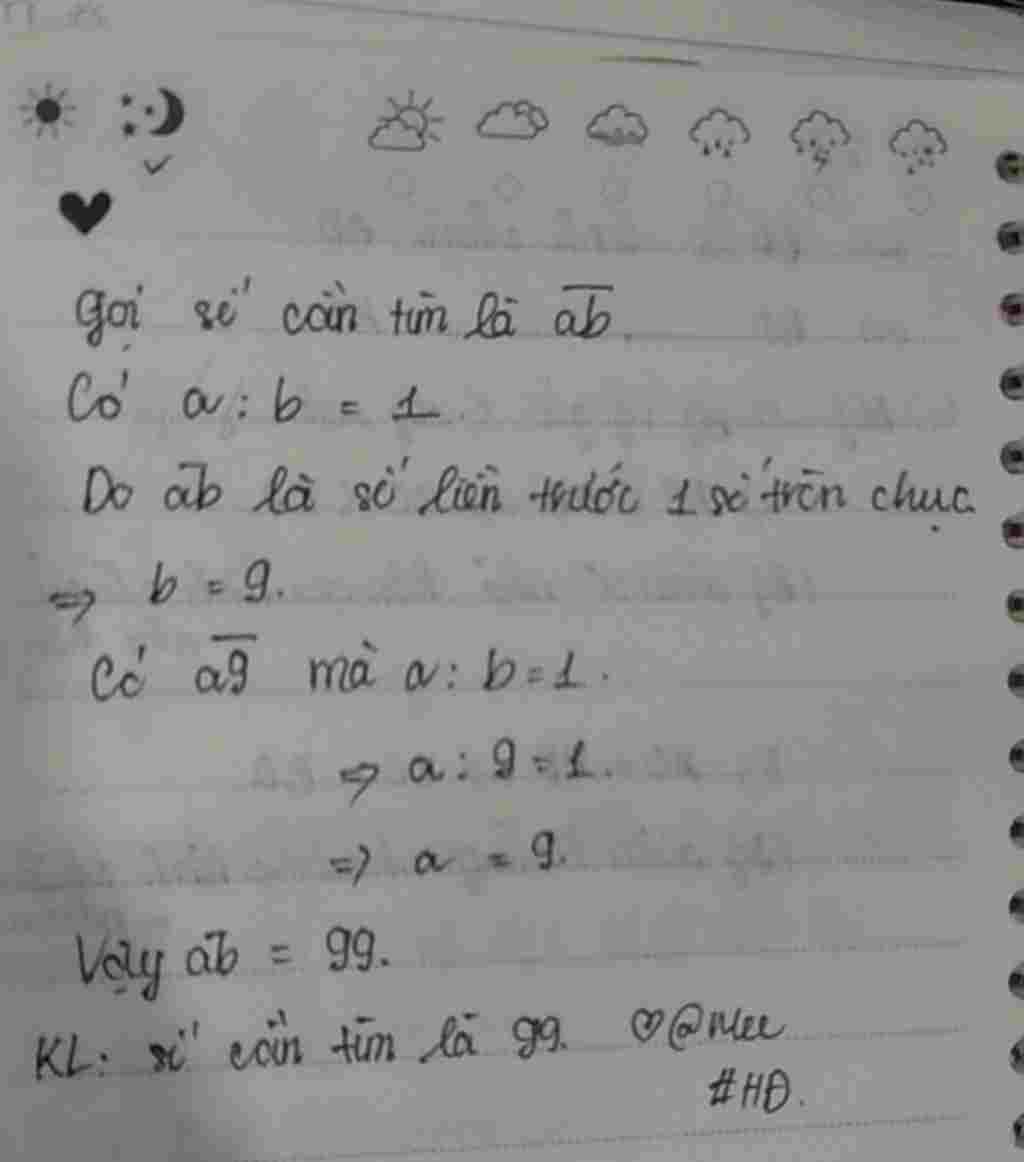 Gọi số cần tìm là ab
Có a : b = 1
Do ab là số liền trước 1 số tròn chục
=> b = 9.
Có a9 mà a : b = 1.
=> a : 9 = 1.
=> a = 9.
Vậy ab = 99.
KL: số cần tìm là 99. ♡@Mee
#HĐ.